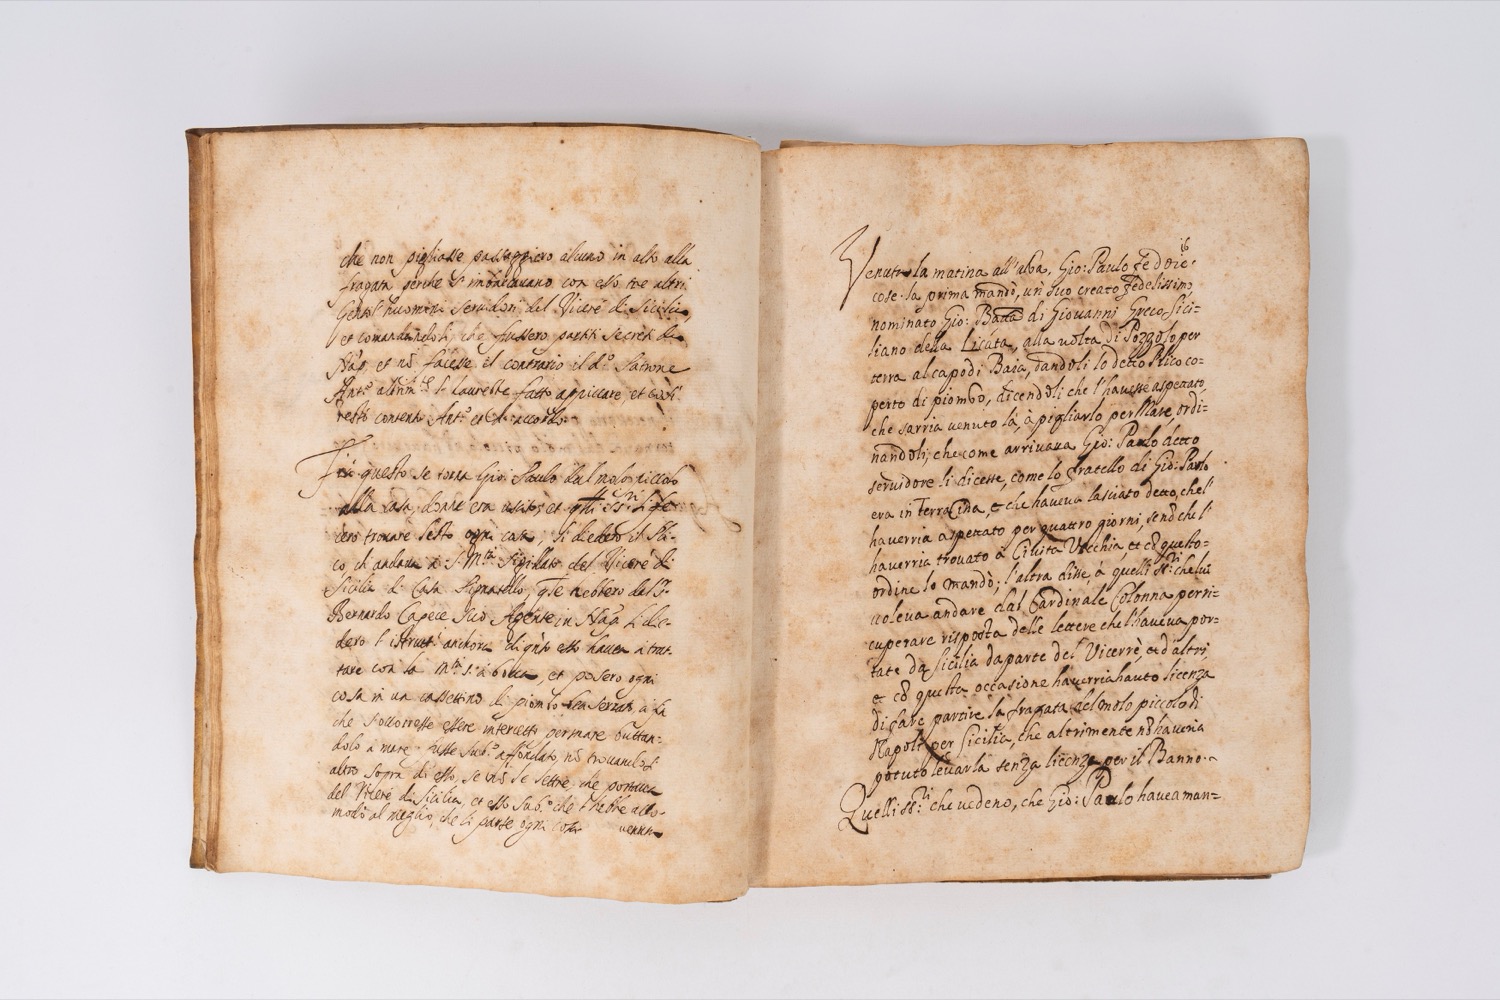 che non pigliasse passaggiero alcuno in alto alla
fragata perche s'imbarcavano con esso tre altri
Gentil'huomini servidori del Viceré di Sicilia,
et comandandoli, che fussero partiti secreti da
Nap. et nõ facesse il contrario il d.º Patrone
Ant.º altrim.te lo faurebbe fatto appiccare, et così
restò contento Ant.º et d'accordo.
Fra questo se torna Gio: Paulo dal molo piccolo
alla casa, donde era uscito, et
cero trovare lesto ogni cosa, li diedero il Pli-
co, ch'andava a S. M.tà sigillato del Viceré di
Sicilia di Casa Pignatello, che hebbero dal S.r
Bernardo Capece suo Agente in Nap. li die-
dero l'istrutt.e anchora di q̃nto esso havea à trat-
tare con la M.tà S. à bocca, et posero ogni
cosa in un cassettino di piombo ben serrato à fin
che s'occorresse essere intercetti per mare buttan-
dolo a mare fusse sub.º affondato, nõ trovandosi
altro sopra di esso, se nõ le lettre, che portava
del Viceré di Sicilia, et esso sub.º che l'hebbe acco-
modò al meglio, che li parse ogni cosa
venuta
16
Venuta la matina all'alba, Gio: Paulo fè doie
cose. la prima mandò, un suo creato fedelissimo
nominato Gio: Batta di Giovanni Greco Sici-
liano della Licata, alla volta di Pozzolo per
terra al capo di Baia, dandoli lo detto Plico co-
perto di piombo, dicendoli che l'havesse aspettato
che sarria venuto là, à pigliarlo per Mare, ordi-
nandoli, che come arrivava Gio: Paulo detto
servidore li dicesse, come lo fratello di Gio: Paulo
era in Terracina, e che haveva lasciato detto, che l'
haverria aspettato per quattro giorni, senò che l'
haverria trovato à Civita Vecchia et cõ questo
ordine lo mandò; l'altra disse, à quelli SS.ri che lui
voleva andare dal Cardinale Colonna per ri-
cuperare risposta delle lettere che l'haveva por-
tate da Sicilia da parte del Vicerrè, et d'altri
e cõ questa occasione haverria hauto licenza
di fare partire la fragata del molo piccolo di
Napoli per Sicilia, che altrimente nõ haveria
potuto levarla senza licenza per il Banno.
Quelli SS.ri che vedeno, che Gio: Paulo havea man-